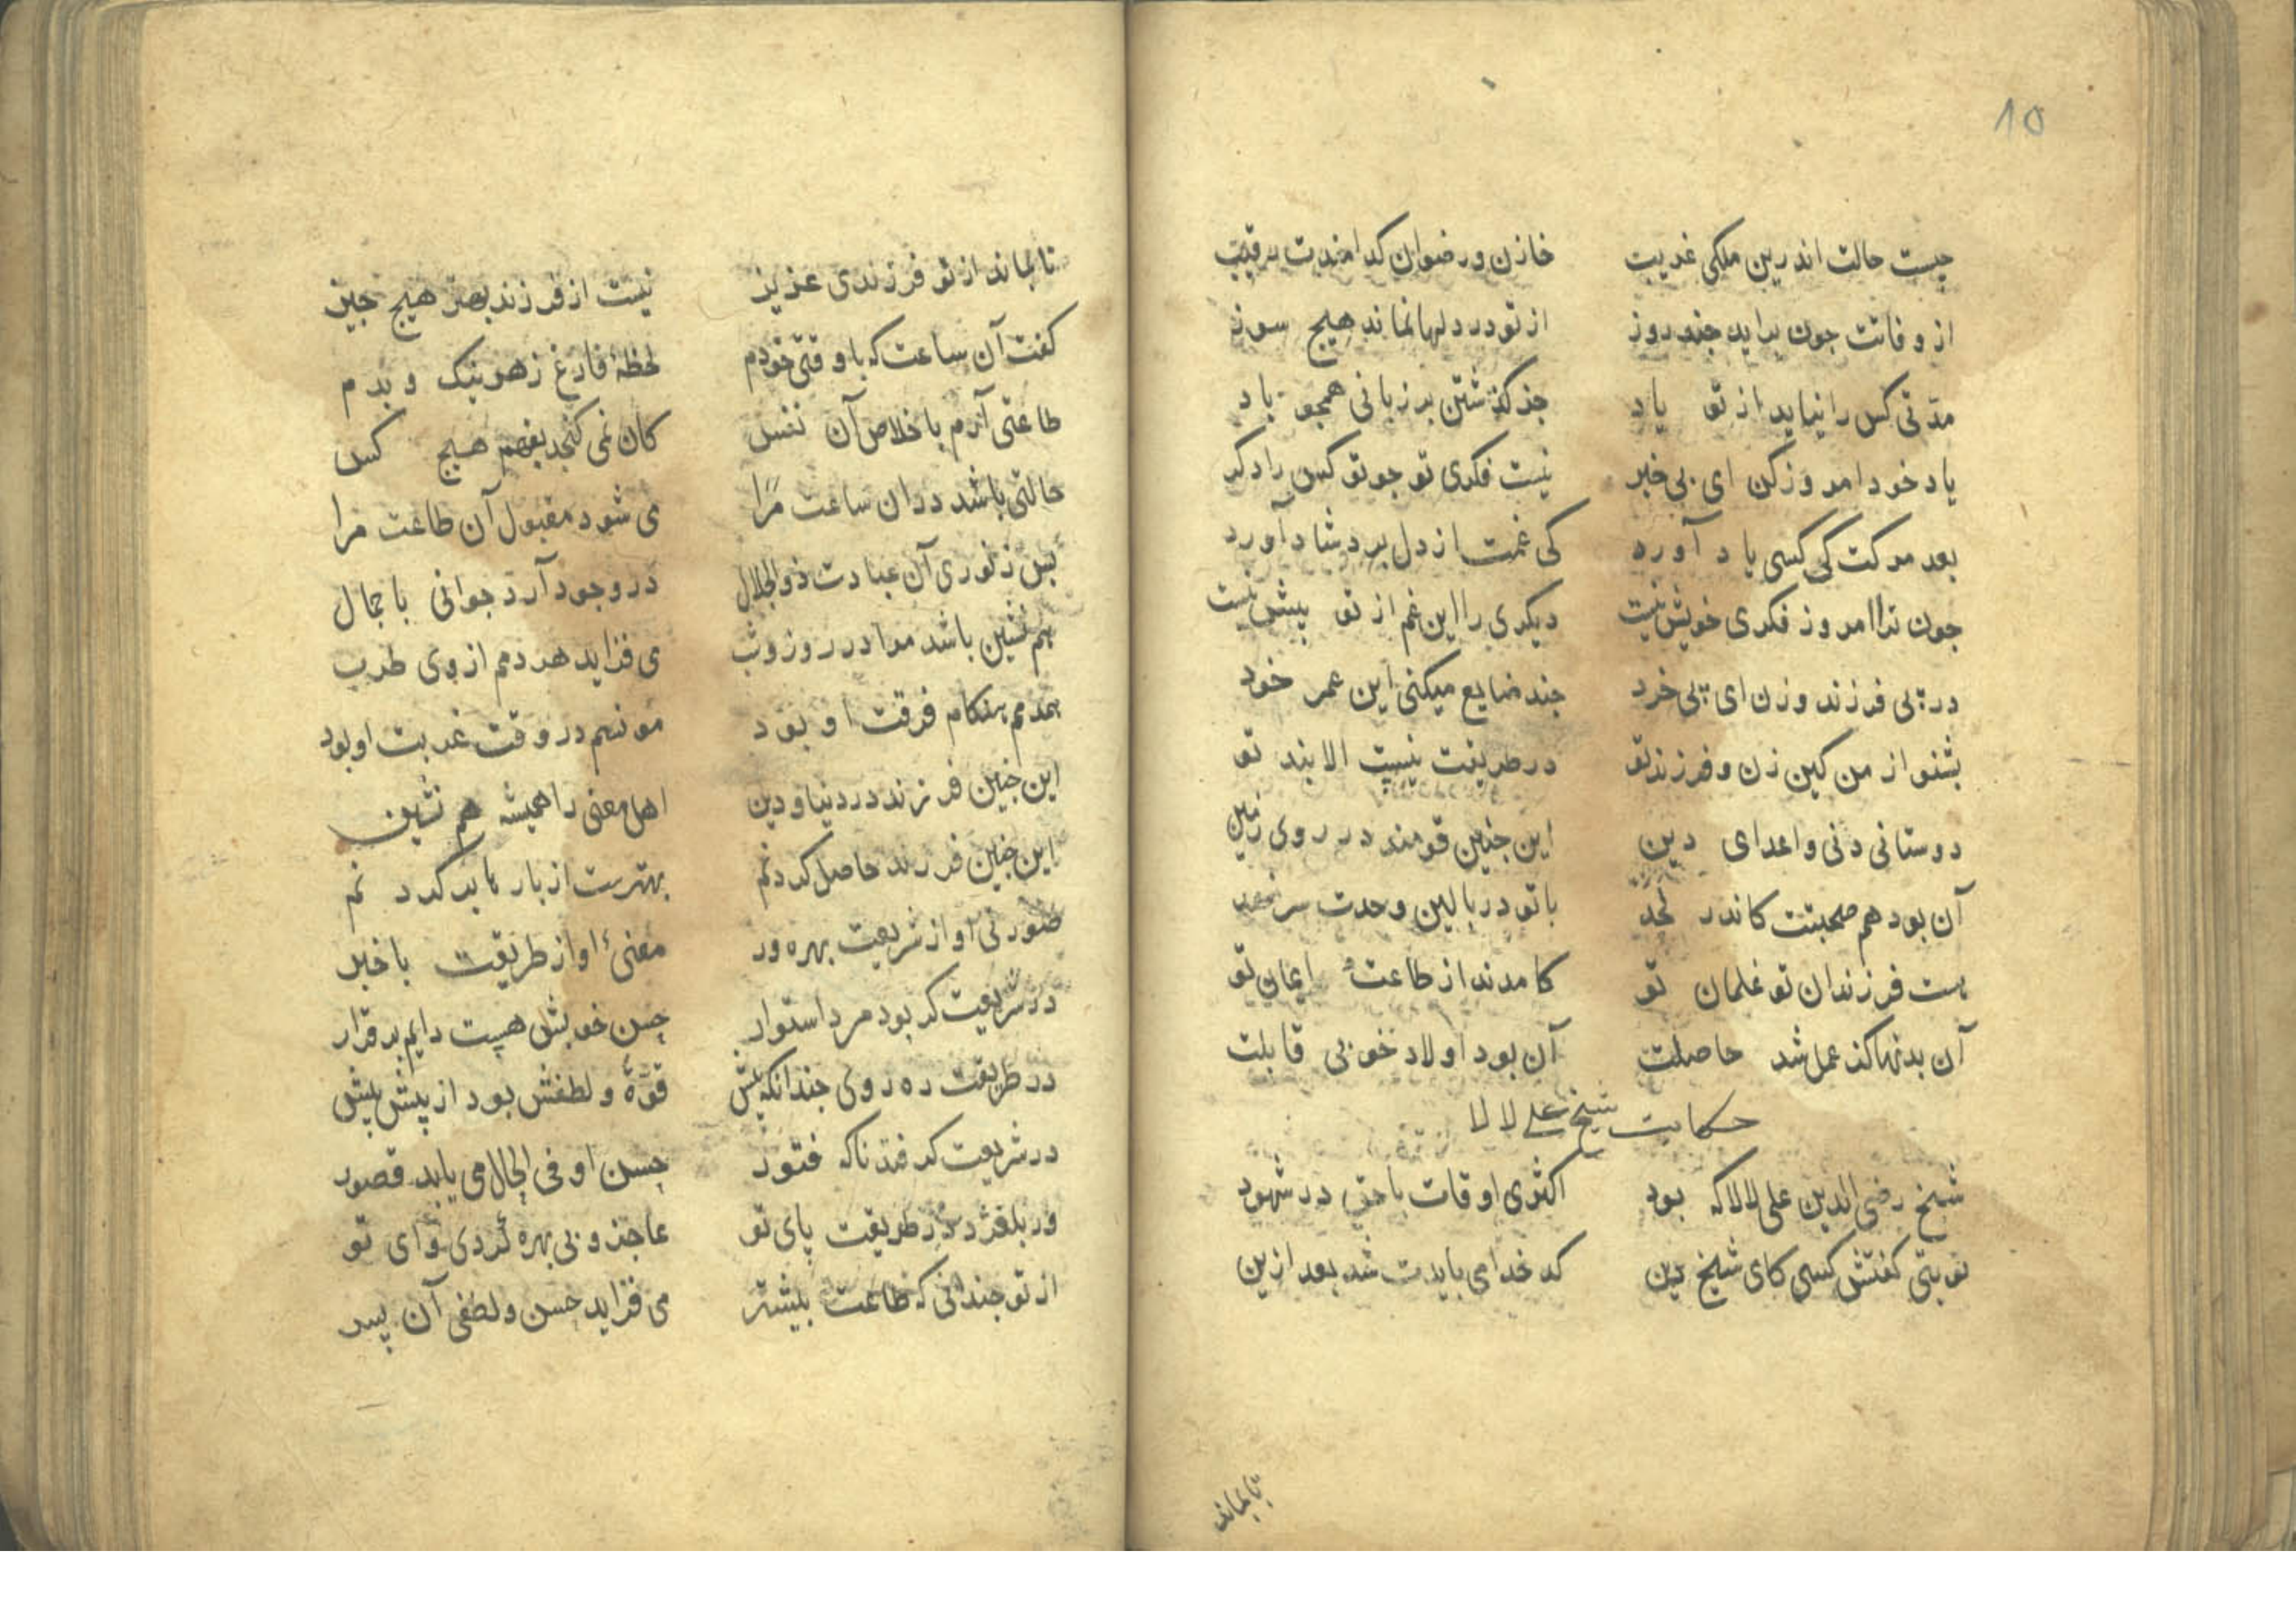 ١٥
جیست حالت اندرین ملکی غریب خازن و رضوان کدامندت رقیب
از وفاتت جون براید جند روز از تو در دلها نماند هیچ سوز
مدتی کس را نیاید از تو یاد جز گذشتن بر زبانی همجو باد
یاد خود امروز کن ای بی خبر نیست فکری تو جو تو کس را دکر
بعد مرکت کی کسی یاد آورد کی غمت از دل برد شاد آورد
جون ترا امروز فکری خویش نیست دیکری را این غم از تو بیش نیست
در پی فرزند و زن ای بی خرد جند ضایع میکنی این عمر خود
بشنو از من کین زن و فرزند تو در طریقت نیست الا بند تو
دوستانی دنی و اعدای دین این جنین قومند در روی زمین
آن بود هم صحبتت کاندر لحد با تو در بالین وحدت سر نهد
هست فرزندان تو غلمان تو کامدند از طاعت ایمان تو
آن بدنها کز عمل شد حاصلت آن بود اولاد خوبی قابلت
حکایت شیخ علی لالا
شیخ رضی الدین علی لالا که بود اکثری اوقات با حق در شهود
نوبتی کفتش کسی کای شیخ دین کدخدا می بایدت شد بعد ازین
تا بماند
تا بماند از تو فرزندی عزیز نیست از فرزند بهتر هیج جیز
کفت آن ساعت که با وقتی خودم لحظهٔ فارغ زهر نیک و بدم
طاعتی آرم با خلاص آن نفس کان نمی کنجد بفهم هیج کس
حالتی باشد دران ساعت مرا می شود مقبول آن طاعت مرا
بس ز نوری آن عبادت ذوالجلال در وجود آرد جوانی با جمال
هم نشین باشد مرا در روز و شب می فزاید هر دمم از وی طرب
همدمم هنکام فرقت او بود مونسم در وقت غربت او بود
این جنین فرزند در دنیا و دین اهل معنی را همیشه هم نشین
این جنین فرزند حاصل کردنم بهترست از بار ها بر کردنم
صورتی او از شریعت بهره ور معنیٔ او از طریقت با خبر
در شریعت کر بود مرد استوار حسن خوبش هست دایم بر قرار
در طریقت ره روی جندانکه بیش قوهٔ و لطفش بود از پیش بیش
در شریعت کر فتد ناکه فتور حسن او فی الحال می یابد قصور
ور بلغزد در طریقت پای تو عاجز و بی بهره کردی وای تو
از تو جندانی که طاعت بیشتر می فزاید حسن و لطفی آن پسر